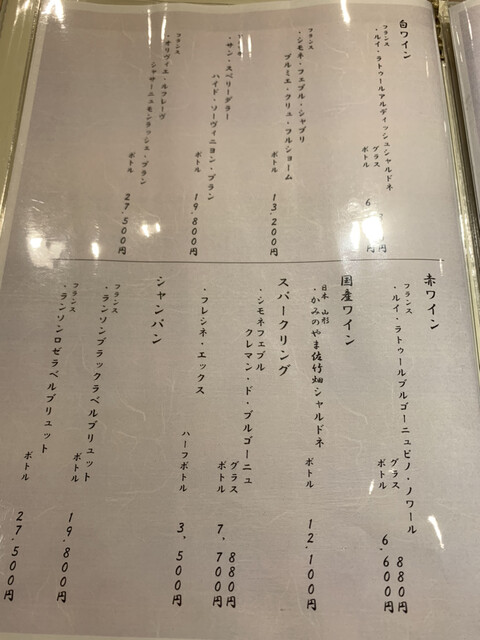 白ワイン
フランス
・ルイ・ラトゥールアルディッシュシャルドネ
グラス
ボトル 6.
フランス
・シモネ・フェブル・シャブリ
プルミエ・クリュ・フルショーム
ボトル 13.200円
・サン・スペリーダラー
ハイド・ソーヴィニヨン・ブラン
ボトル 19.800円
フランス
・オリヴィエ・ルフレーヴ
シャサーニュモンラッシェ・ブラン
ボトル 27.500円
赤ワイン
フランス
・ルイ・ラトゥールブルゴーニュピノ・ノワール
グラス 880円
ボトル 6.600円
国産ワイン
日本 山形
・かみのやま佐竹畑シャルドネ
ボトル 12.100円
スパークリング
・シモネフェブル
クレマン・ド・ブルゴーニュ
グラス 880円
ボトル 7.700円
・フレシネ・エックス
ハーフボトル 3.500円
シャンパン
フランス
・ランソンブラックラベルブリュット
ボトル 19.800円
フランス
・ランソンロゼラベルブリュット
ボトル 27.500円